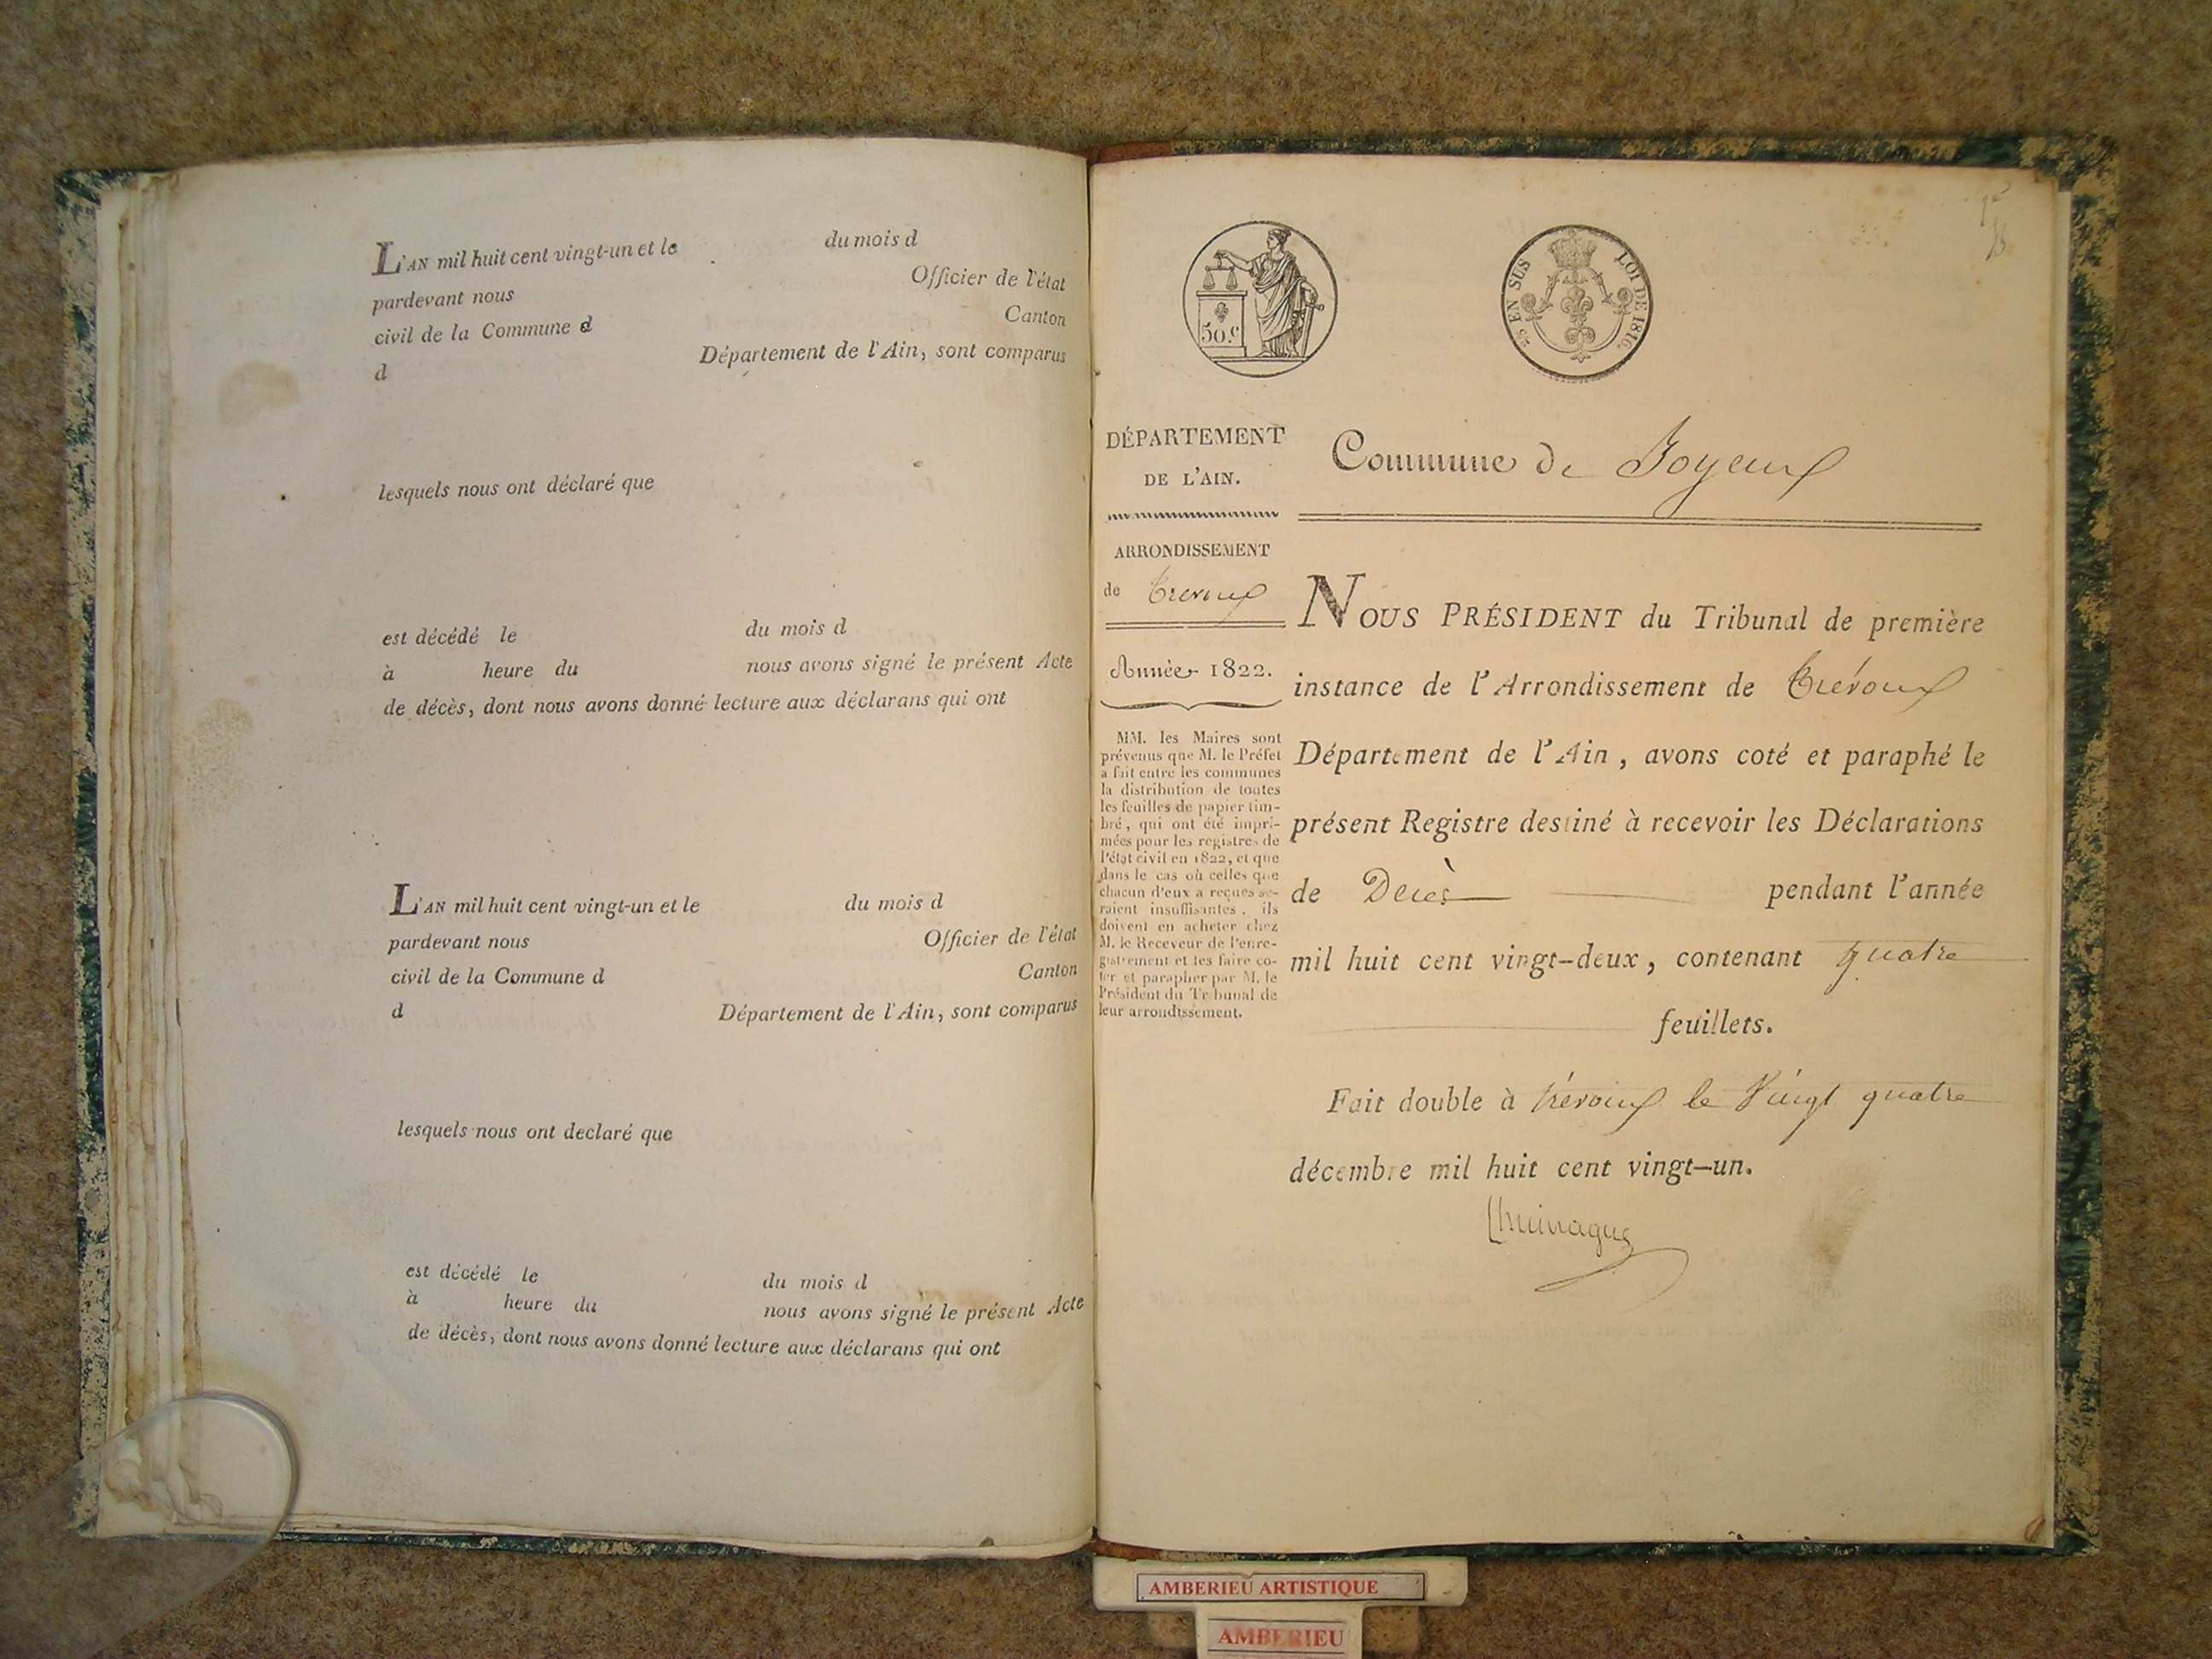 L'AN mil huit cent vingt-un et le du mois d
pardevant nous Officier de l'état
civil de la Commune d Canton
d Département de l'Ain, sont comparus
lesquels nous ont déclaré que
est décédé le du mois d
à heure du nous avons signé le présent Acte
de décès, dont nous avons donné lecture aux déclarans qui ont
L'AN mil huit cent vingt-un et le du mois d
pardevant nous Officier de l'état
civil de la Commune d Canton
d Département de l'Ain, sont comparus
lesquels nous ont declaré que
est décédé le du mois d
à heure du nous avons signé le présent Acte
de décès, dont nous avons donné lecture aux déclarans qui ont
50.c
EN SUS LOI DE 1816.
DÉPARTEMENT
DE L'AIN.
ARRONDISSEMENT
de Trevoux
Année 1822.
MM. les Maires sont
prévenus que M. le Préfet
a fait entre les communes
la distribution de toutes
les feuilles de papier tim-
bré, qui ont été impri-
mées pour les registres de
l'état civil en 1822, et que
dans le cas où celles que
chacun d'eux a reçues se-
raient insuffisantes, ils
doivent en acheter chez
M. le Receveur de l'enre-
gistrement et les faire co-
ter et parapher par M. le
Président du Tribunal de
leur arrondissement.
Commune de Joyeux
NOUS PRÉSIDENT du Tribunal de première
instance de l'Arrondissement de Trévoux
Département de l'Ain, avons coté et paraphé le
présent Registre destiné à recevoir les Déclarations
de Decès pendant l'année
mil huit cent vingt-deux, contenant quatre
feuillets.
Fait double à Trévoux le Vingt quatre
décembre mil huit cent vingt-un.
AMBERIEU ARTISTIQUE
AMBERIEU